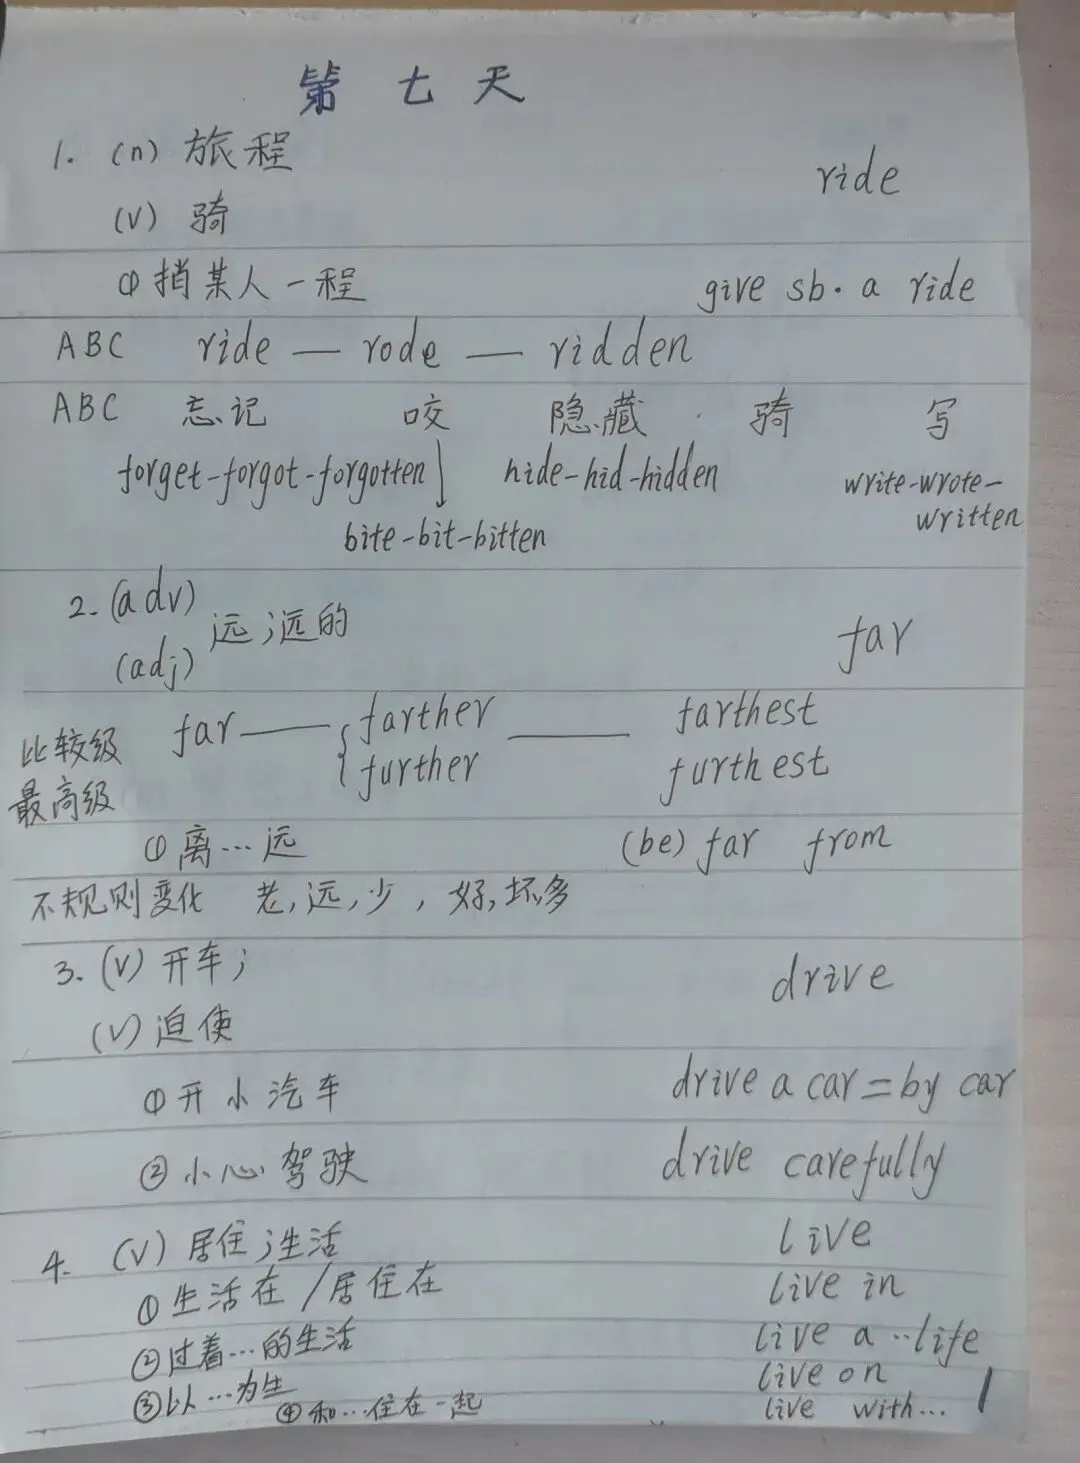 第七天
1. (n) 旅程
ride
(v) 骑
① 捎某人一程 give sb. a ride
ABC ride — rode — ridden
ABC 忘记 咬 隐藏 骑 写
forget-forgot-forgotten hide-hid-hidden write-wrote-
written
bite-bit-bitten
2. (adv)
远;远的 far
(adj)
比较级 far — { farther — farthest
最高级 further furthest
① 离…远 (be) far from
不规则变化 老,远,少,好,坏,多
3. (v) 开车; drive
(v) 迫使
① 开小汽车 drive a car = by car
② 小心驾驶 drive carefully
4. (v) 居住;生活 live
① 生活在/居住在 live in
② 过着…的生活 live a ..life
③ 以…为生 live on
④ 和…住在一起 live with...
1